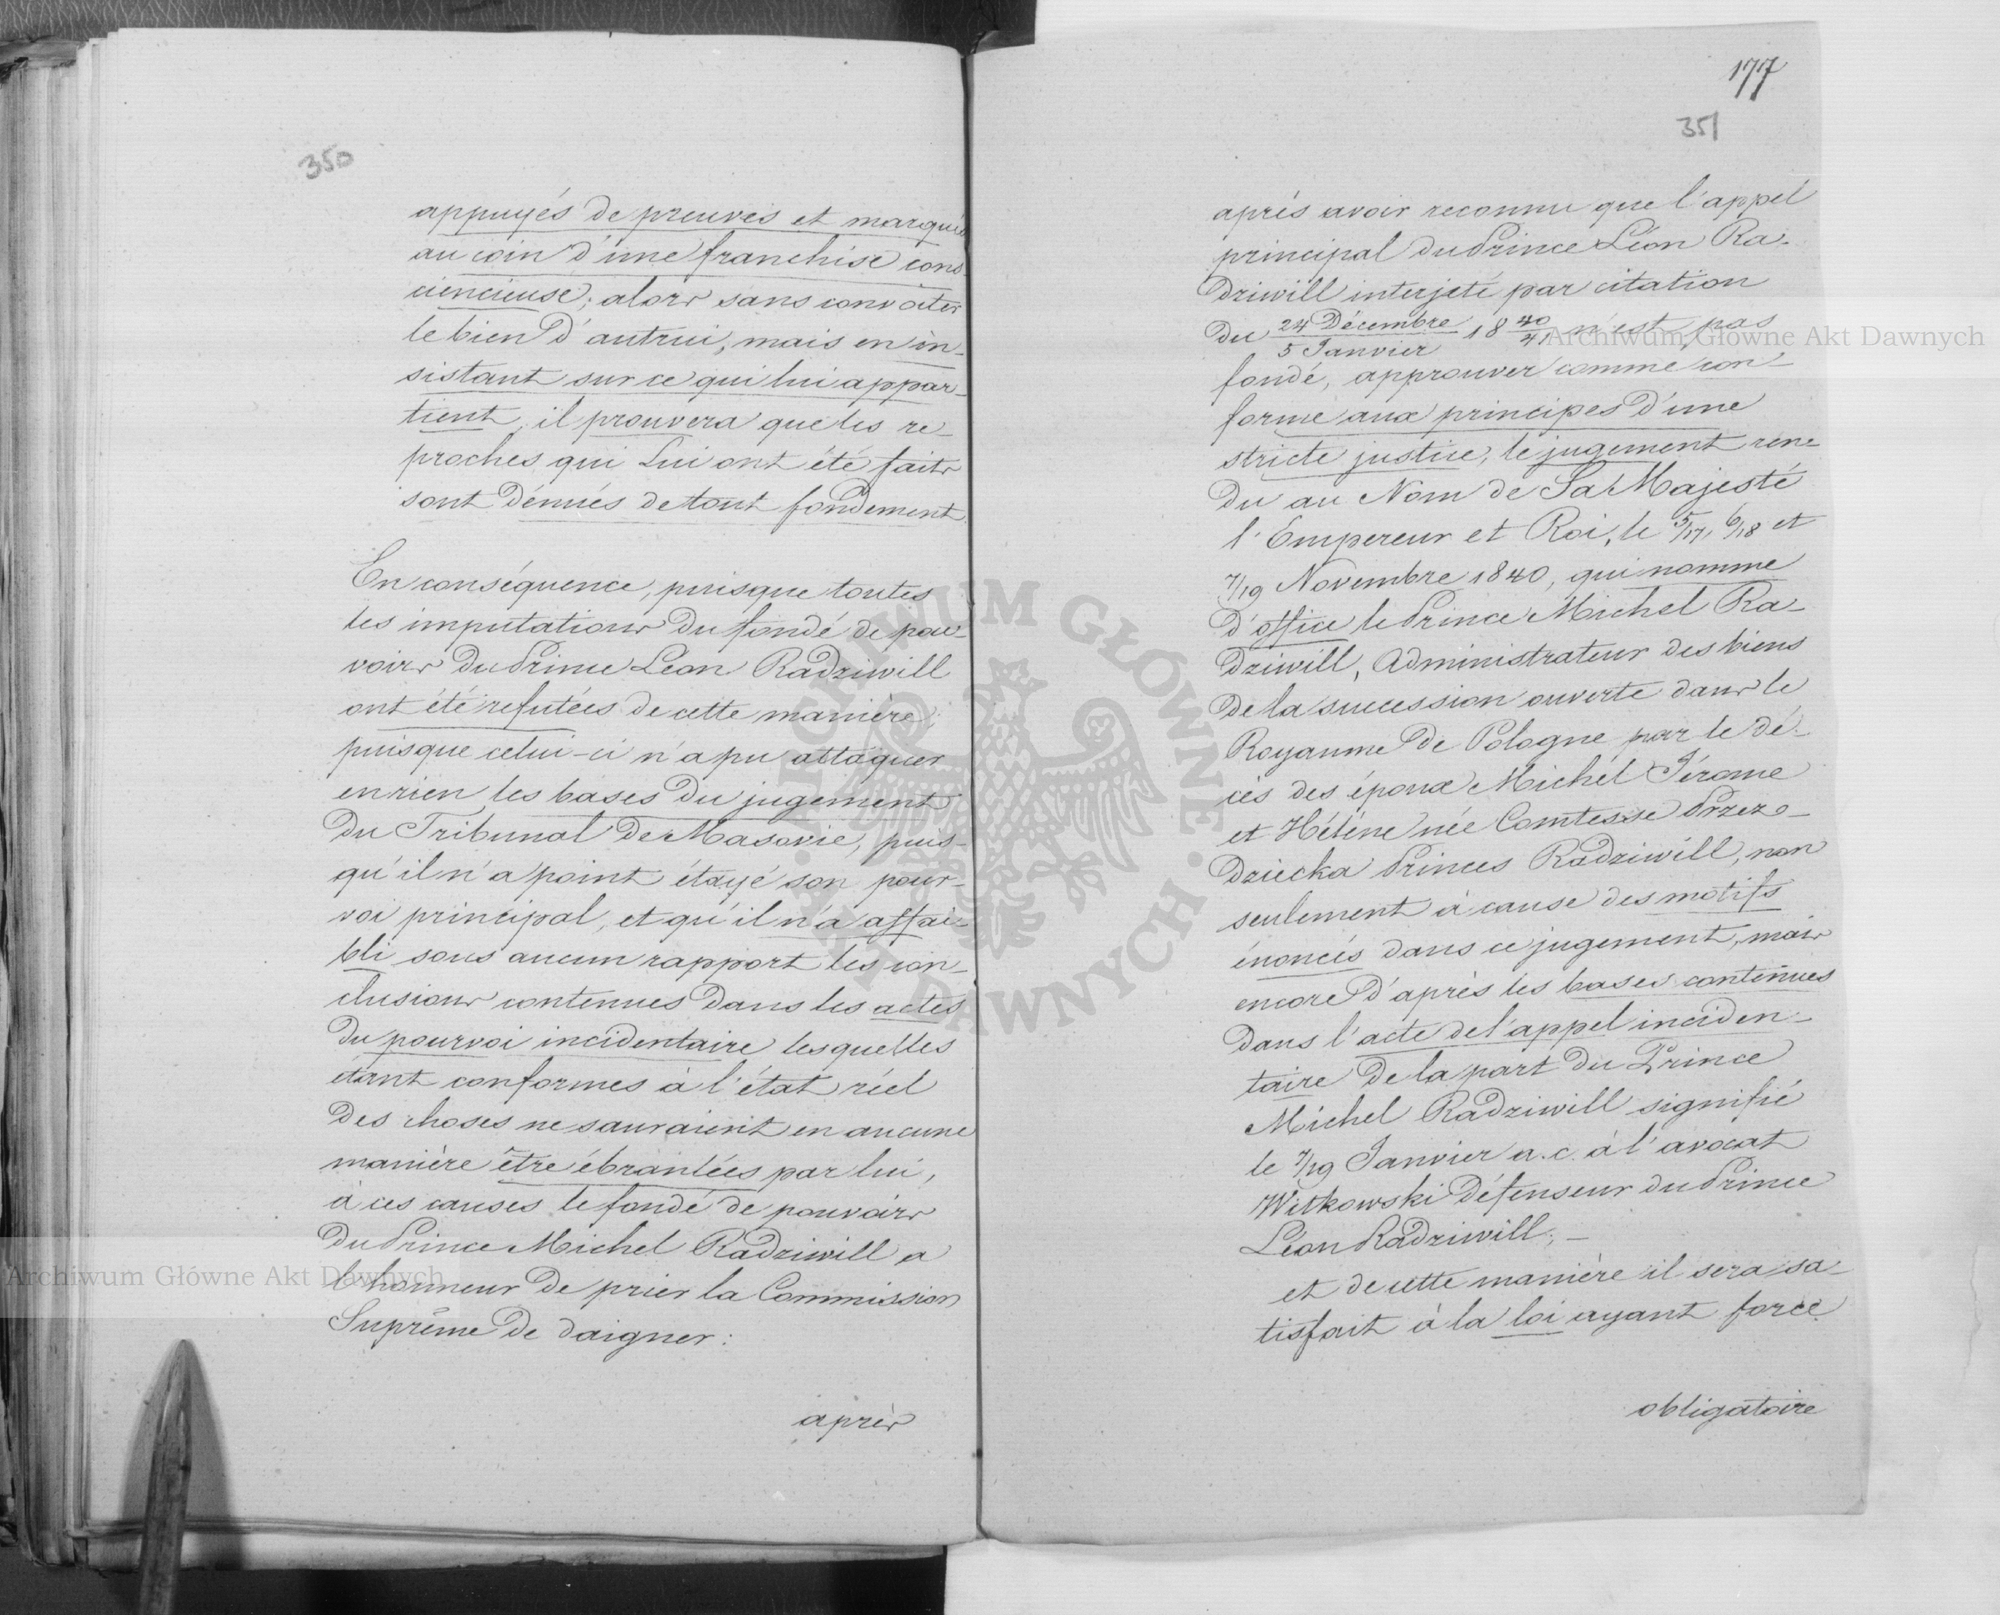 350
appuyés de preuves et marqués
au coin d'une franchise cons-
ciencieuse; alors sans convoiter
le bien d'autrui, mais en in-
sistant sur ce qui lui appar-
tient, il prouvera que les re-
proches qui Lui ont été faits
sont dénués de tout fondement.
En conséquence, puisque toutes
les imputations du fondé de pou-
voirs du Prince Léon Radziwill
ont été refutées de cette manière;
puisque celui-ci n'a pu attaquer
en rien les bases du jugement
du Tribunal de Masovie, puis-
qu'il n'a point étayé son pour-
voi principal, et qu'il n'a affai-
bli sous aucun rapport les con-
clusions contenues dans les actes
du pourvoi incidentaire lesquelles
étant conformes à l'état réel
des choses ne sauraient en aucune
manière être ébranlées par lui,
à ces causes le fondé de pouvoirs
du Prince Michel Radziwill a
l'honneur de prier la Commission
Suprême de daigner:
après
177
351
après avoir reconnu que l'appel
principal du Prince Léon Ra-
dziwill interjeté par citation
du 24 Décembre/5 Janvier 18 40/41 n'est pas
fondé, approuver comme con-
forme aux principes d'une
stricte justice, le jugement ren-
du au Nom de Sa Majesté
l'Empereur et Roi, le 5/17, 6/18 et
7/19 Novembre 1840, qui nomme
d'office le Prince Michel Ra-
dziwill, Administrateur des biens
de la succession ouverte dans le
Royaume de Pologne par le dé-
cès des époux Michel Jérome
et Hélène née Comtesse Przez-
dziecka Princes Radziwill, non
seulement à cause des motifs
énoncés dans ce jugement, mais
encore d'après les bases contenues
dans l'acte de l'appel inciden-
taire de la part du Prince
Michel Radziwill signifié
le 7/19 Janvier a.c. à l'avocat
Witkowski défenseur du Prince
Léon Radziwill; —
et de cette manière il sera sa-
tisfait à la loi ayant force
obligatoire
Archiwum Główne Akt Dawnych
Archiwum Główne Akt Dawnych
ARCHIWUM GŁÓWNE AKT DAWNYCH